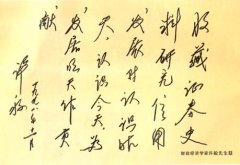 收藏证券史
料研究信用
发展对认识昨
天、认识今天、为
发展明天作贡
献
许毅
一九九八年
财政经济学家许毅先生题